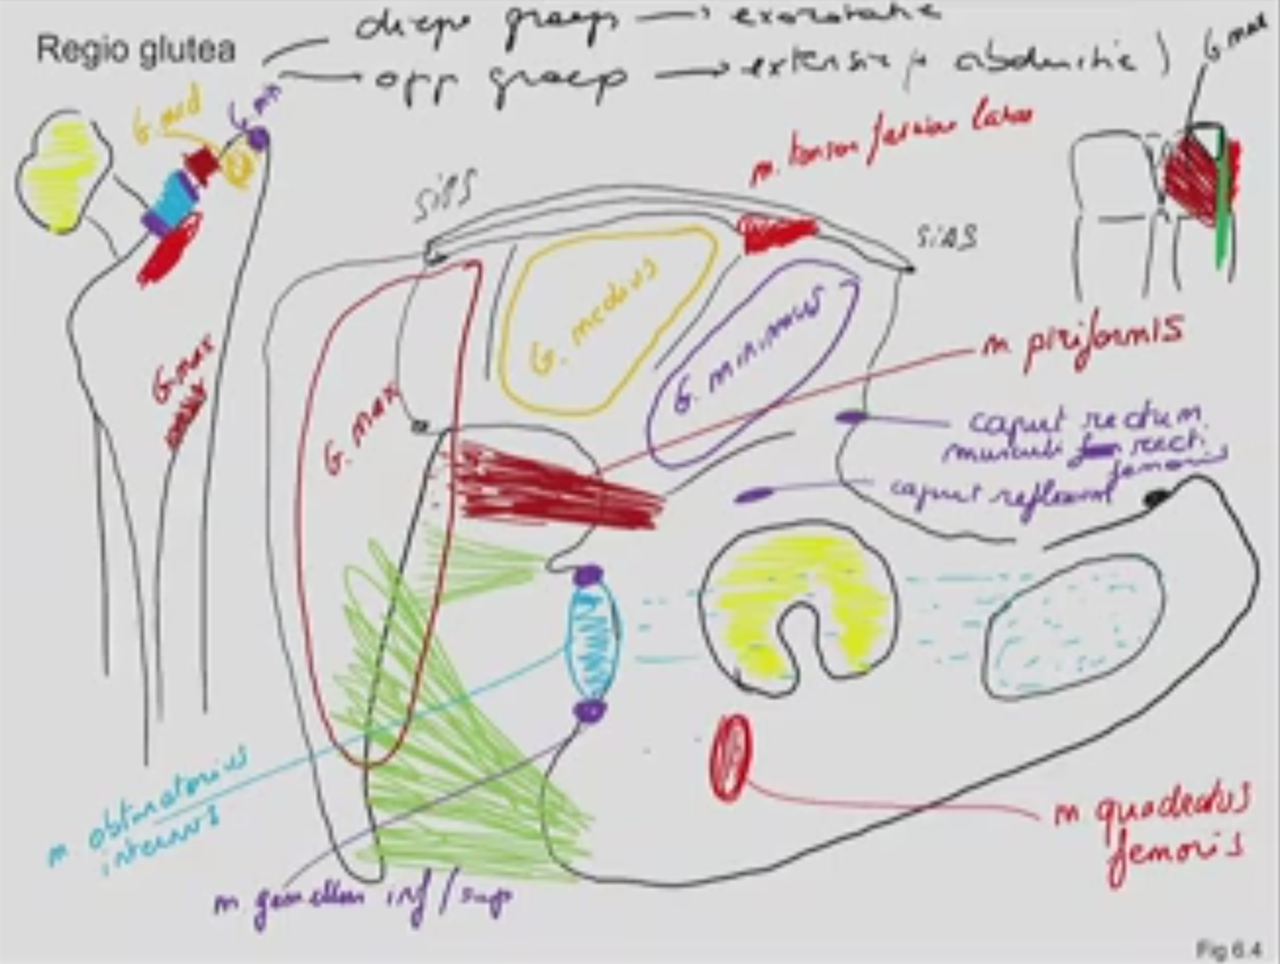 Regio glutea
diepe groep → exorotatie
opp groep → extensie (+ abductie)
G. max
G. med
G. min
m. tensor fasciae latae
SIPS
SIAS
G. medius
G. minimus
G. max
G. max
m. piriformis
caput rectum
musculi recti
femoris
caput reflexum
m. obturatorius
internus
m. gemellus inf/sup
m quadratus
femoris
Fig 6.4